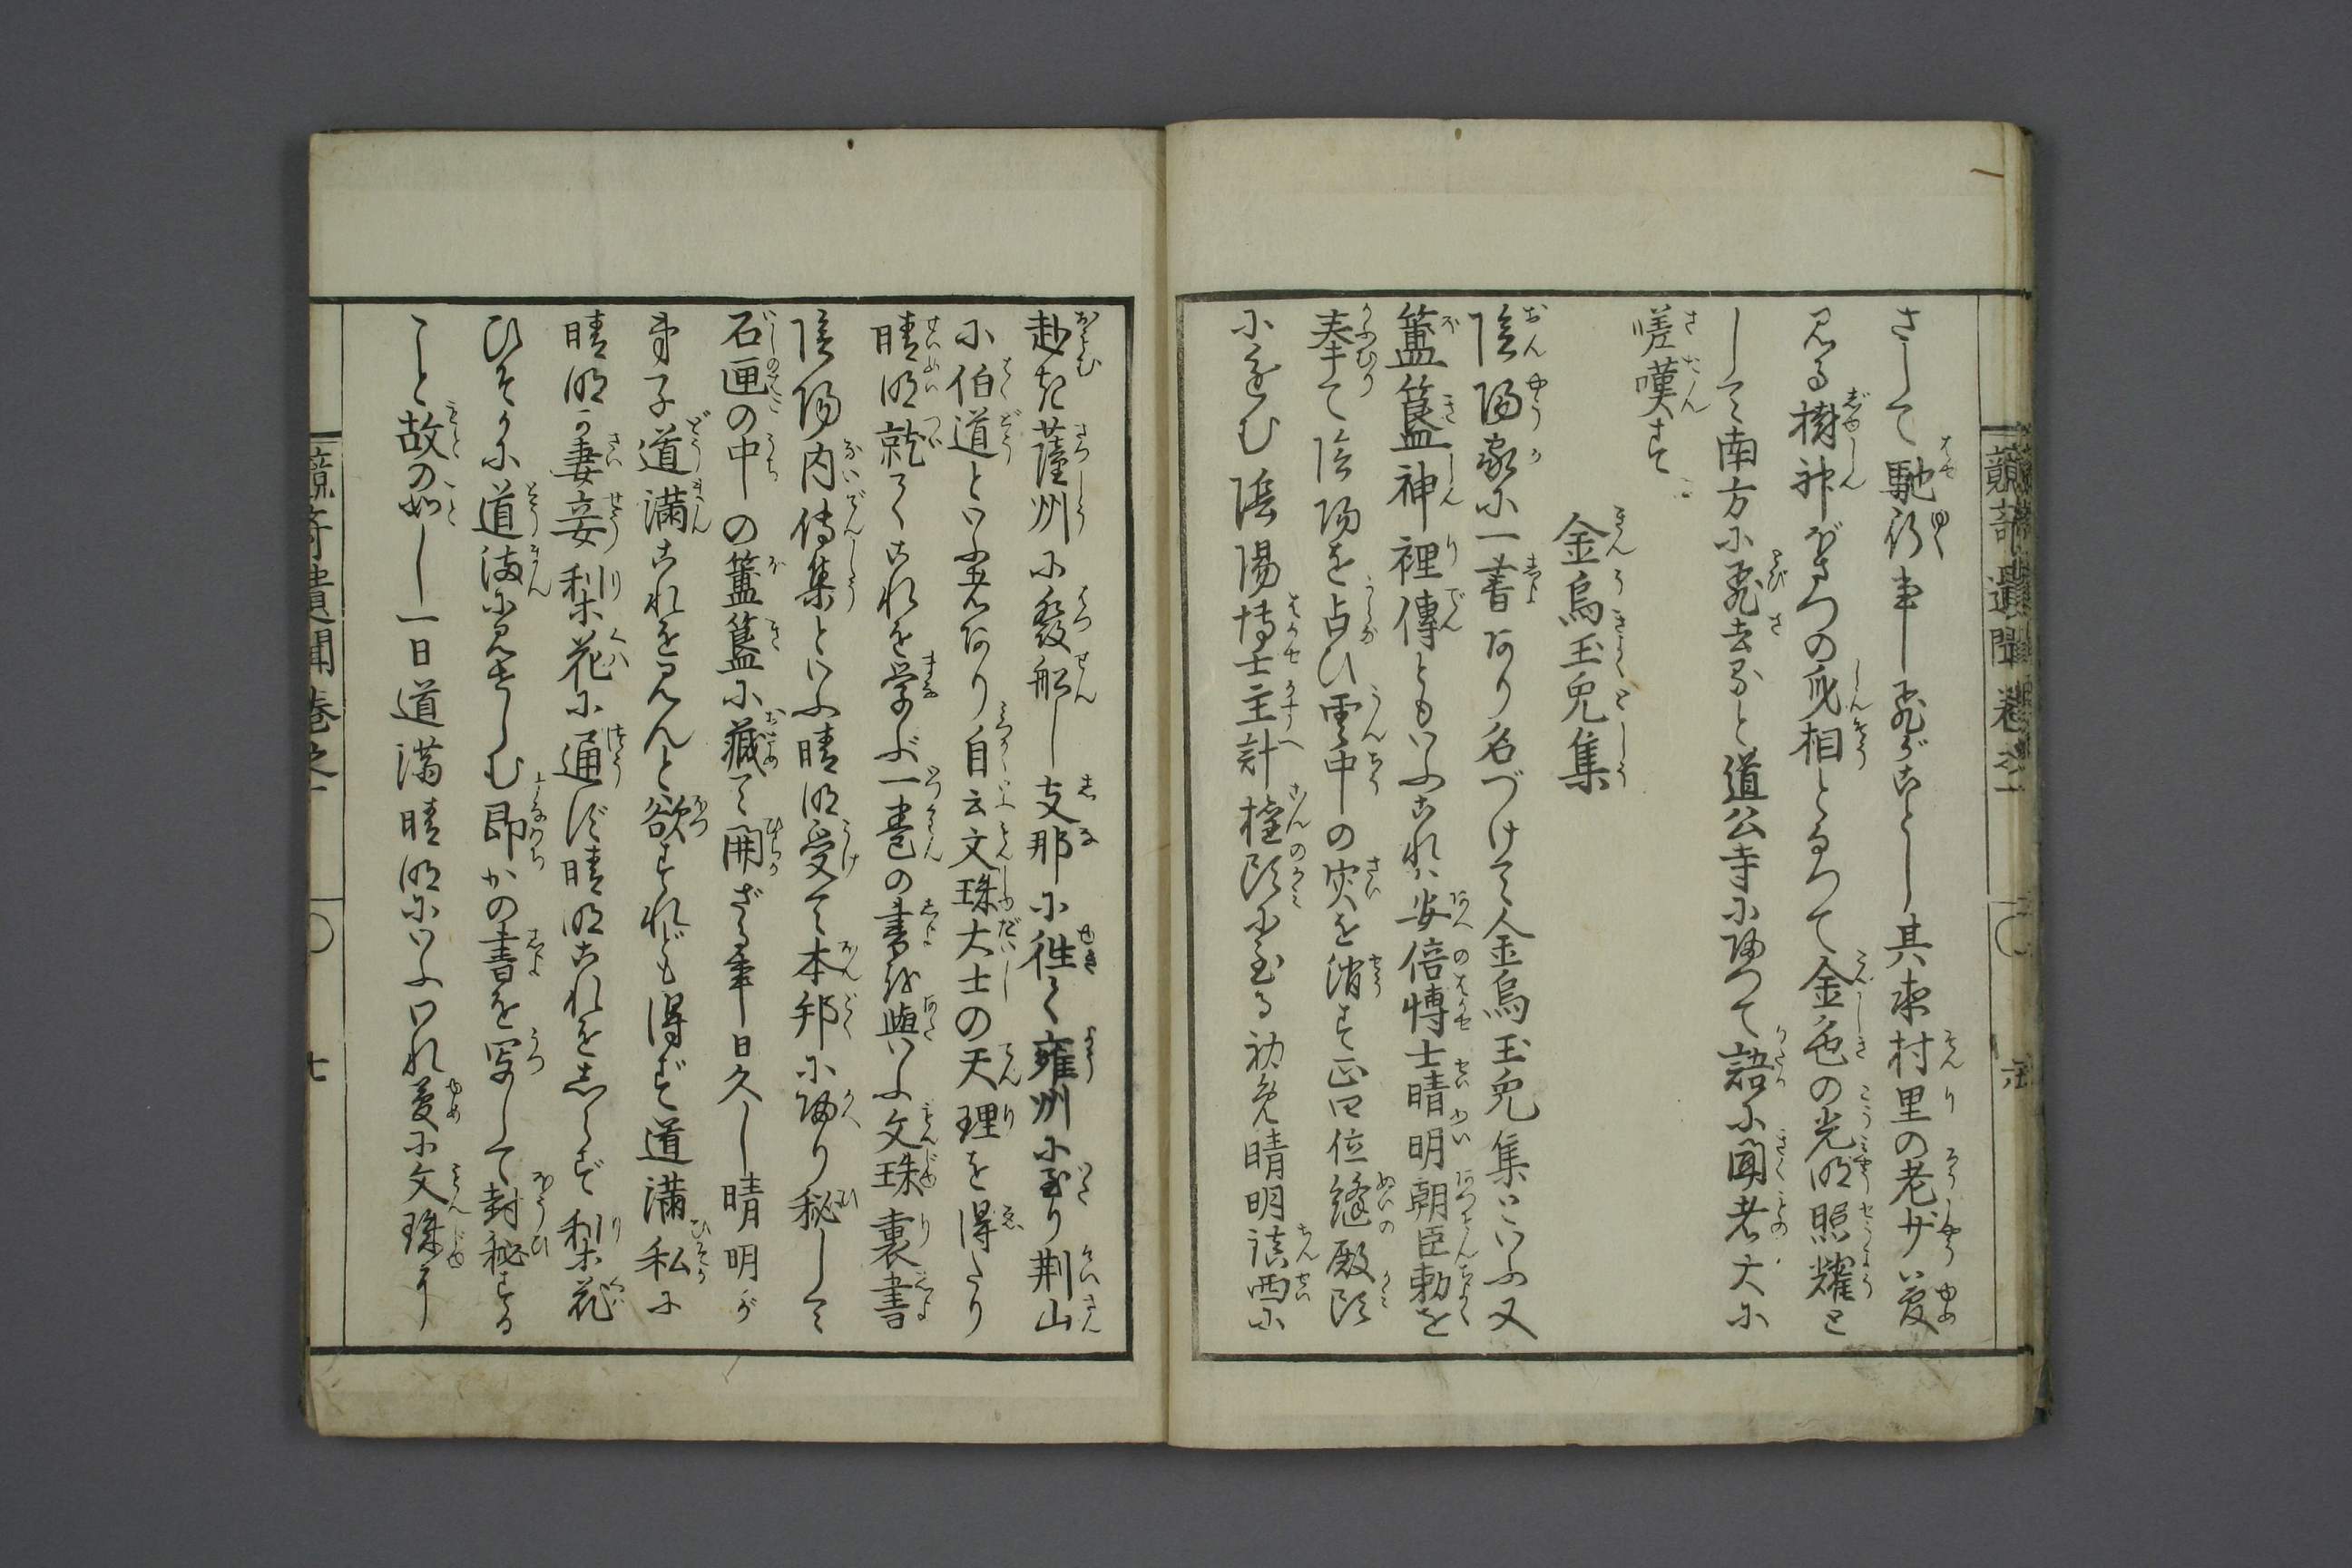 さして馳行事飛がごとし其夜村里の老女が夢
見る樹神ぼさつの身相となつて金色の光明照耀と
して南方に飛去ると道公寺に帰つて語に聞者大に
嗟嘆す
金烏玉兎集
陰陽家に一書あり名づけて金烏玉兎集といふ又
簠簋神裡傳ともいふこれハ安倍博士晴明朝臣勅を
奉て陰陽を占ひ雲中の灾を消す正四位縫殿頭
に进む陰陽博士主計権頭に至る初免晴明鎮西に
赴き薩州に發船し支那に往て雍州に至り荆山
に伯道といふ者あり自云文珠大士の天理を得たり
晴明就てこれを学ぶ一巻の書を與いふ文珠裏書
陰陽内傳集といふ晴明受て本邦に帰り秘して
石匣の中の簠簋に藏て開ざる事日久し晴明が
弟子道満これを見んと欲すれども得ず道満私に
晴明が妻妾梨花に通ず晴明これをしらず梨花
ひそかに道満に見せしむ即かの書を写して封秘する
こと故の如し一日道満晴明にいふわれ夢に文珠に
競奇遺聞巻之一
競奇遺聞巻之一
七